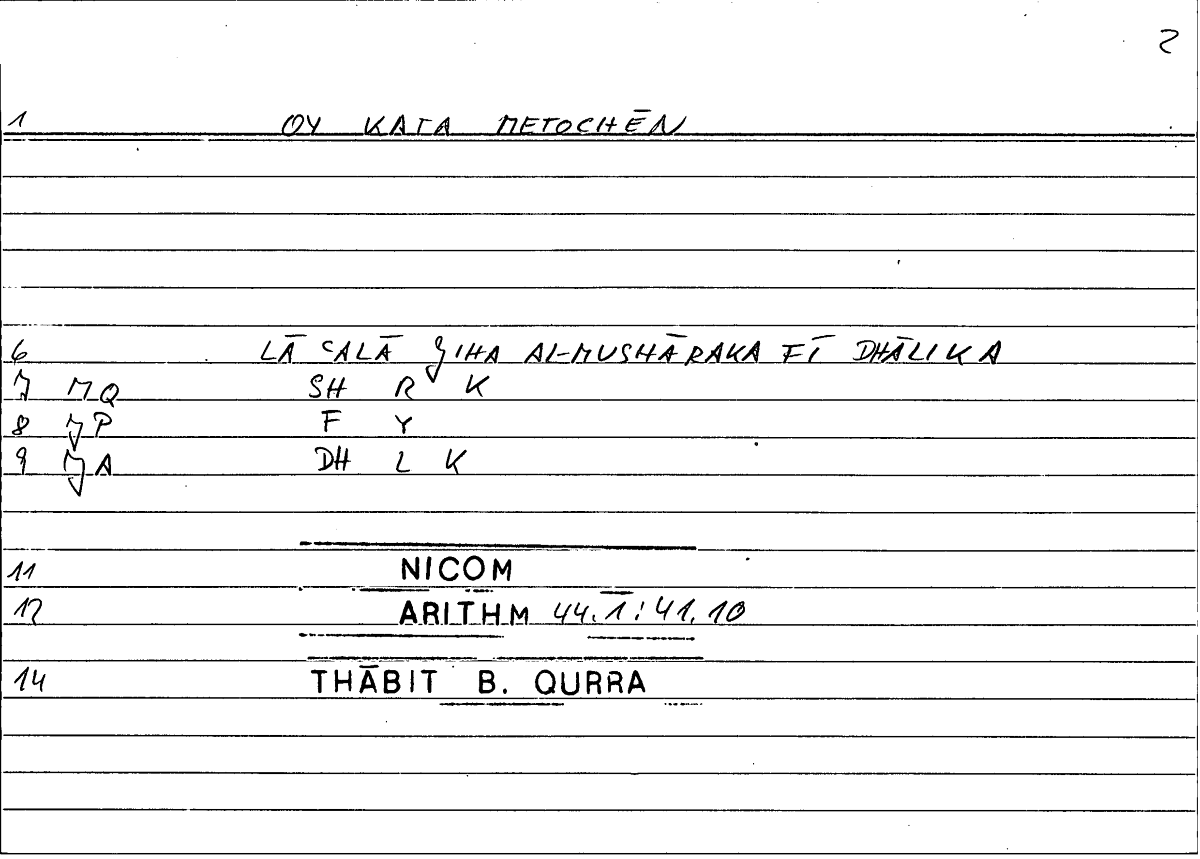 2
1 OY KATA METOCHĒN
6 LĀ ʿALĀ ǦIHA AL-MUSHĀRAKA FĪ DHĀLIKA
7 MQ SH R K
8 F Y
9 DH L K
11 NICOM
12 ARITHM 44.1:41.10
14 THĀBIT B. QURRA